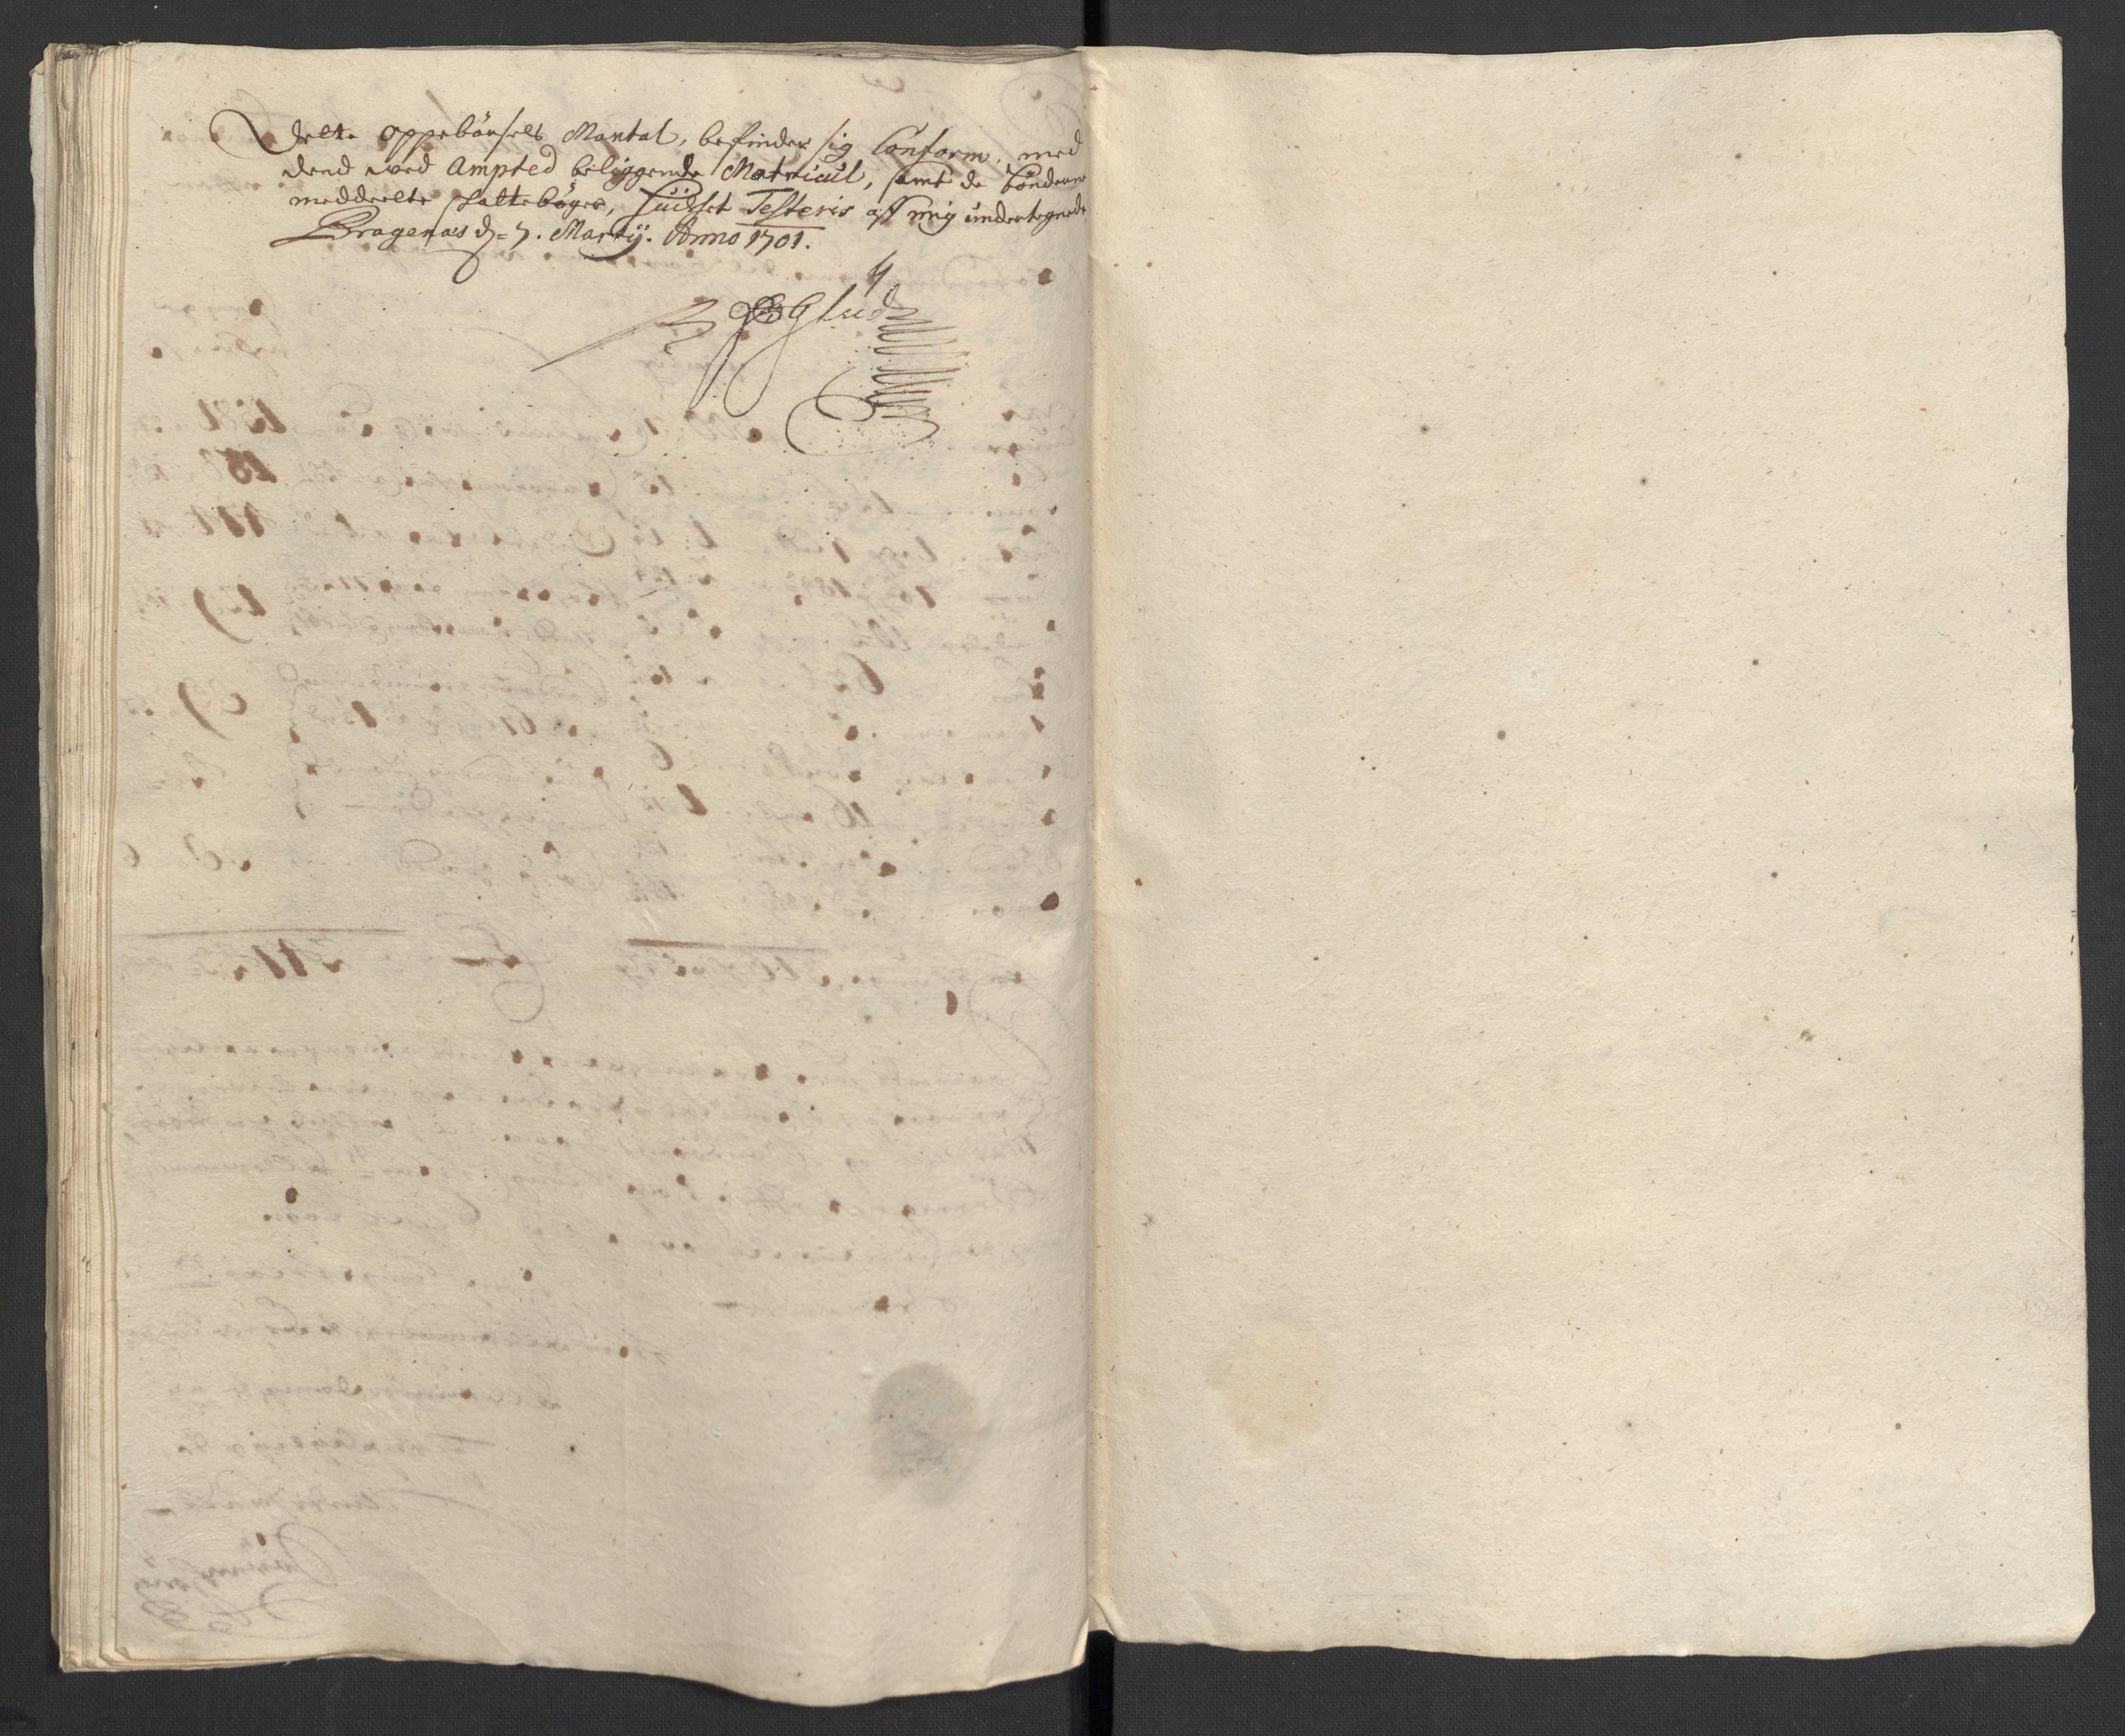 Dette Oppebörsels Mantal, befindes sig Conform, med
dend ved Ampted beliggende Matricul, samt de Bönderne
meddeelte Skattebøger, Huilket Testeris aff mig undertegnede
Bragenæs d. 7. Martij. Anno 1701.
Glud